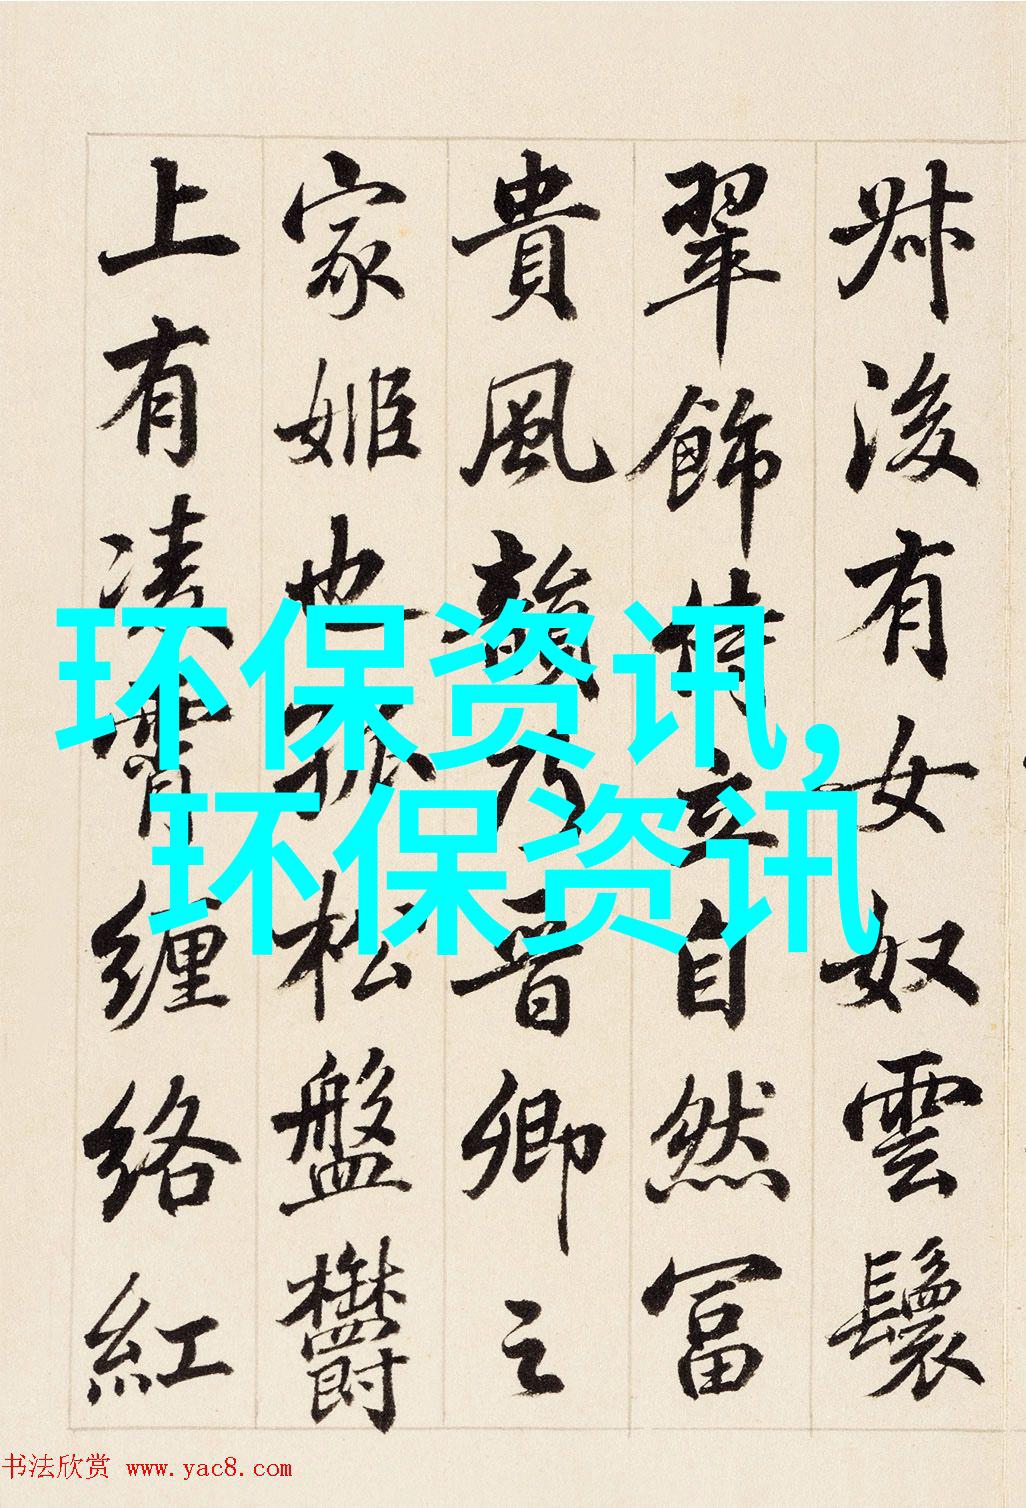 叔後有女奴雲鬟
翠飾侍立自然富
貴風韻乃晉卿之
家姬也孤松盤欝
上有凌霄纏絡紅
环保资讯,
环保资讯
书法欣赏 www.yac8.com